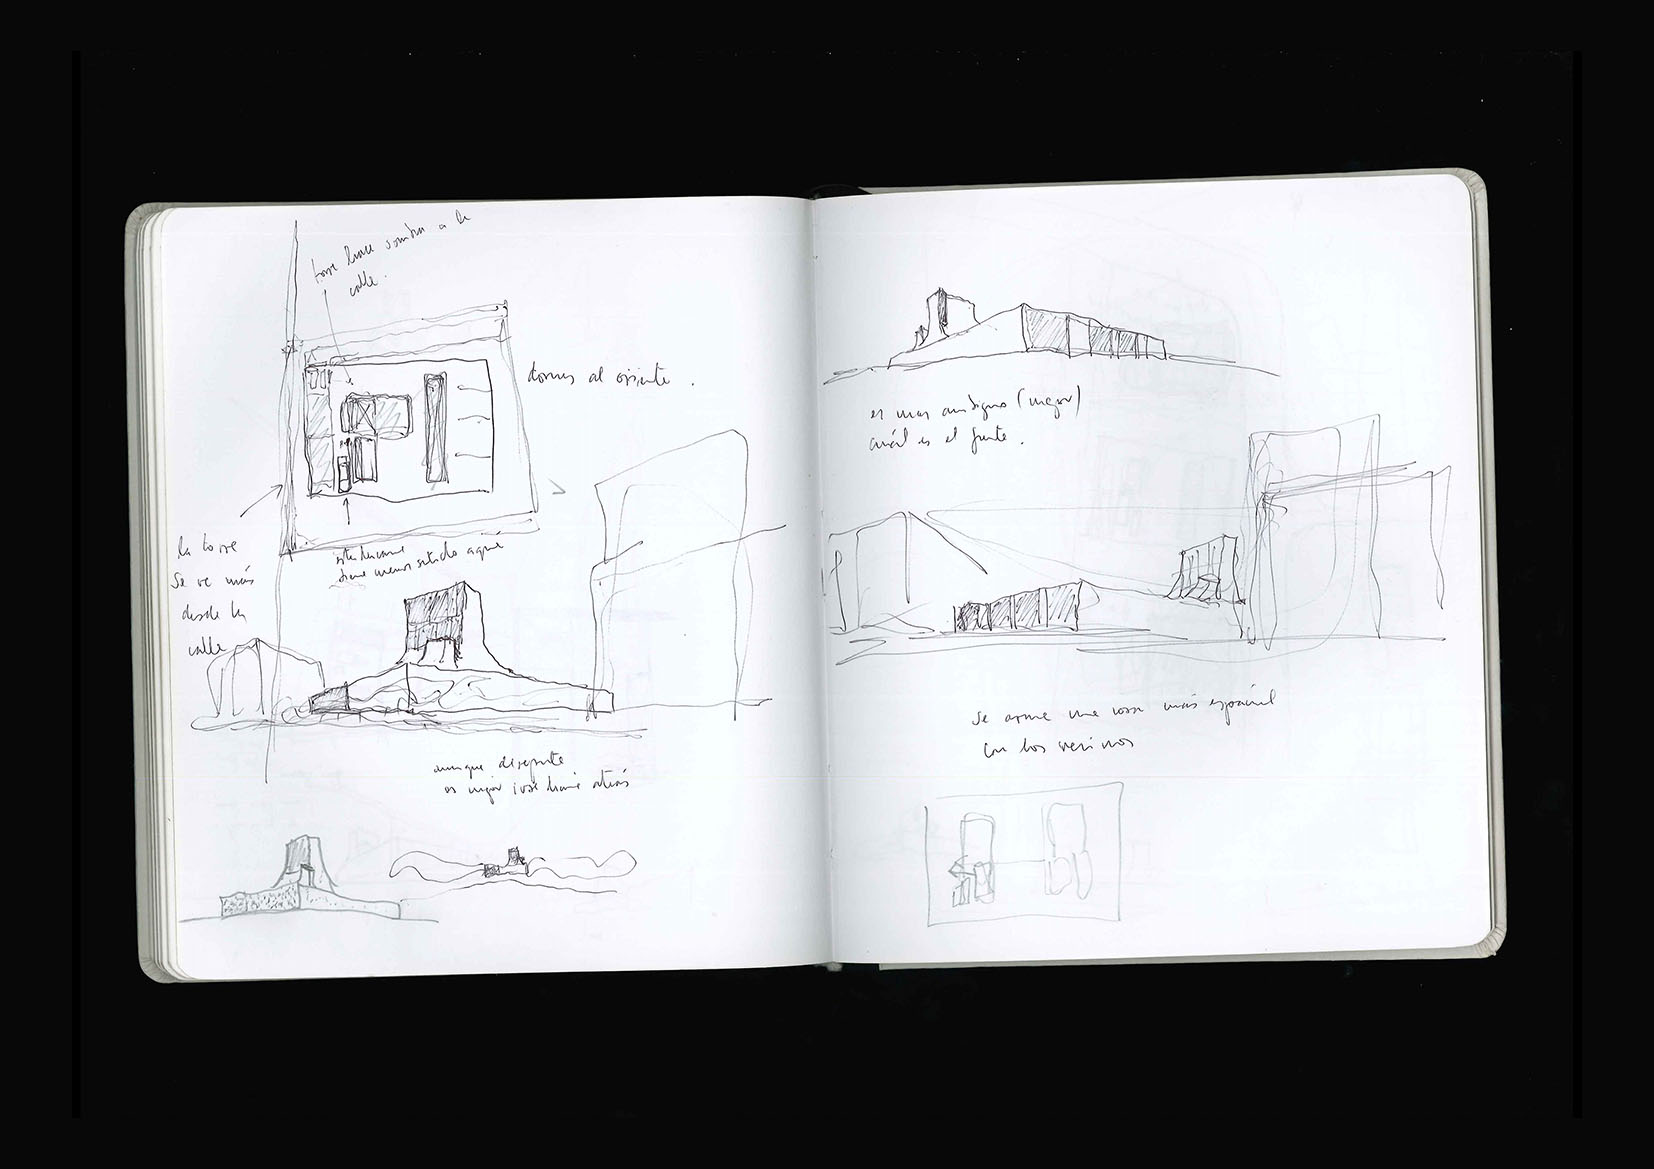 torre hace sombra a la
calle.
dormis al oriente.
la torre
se ve más
desde la
calle
tiene menos sentido aquí
aunque de repente
es mejor hacia atrás
es mas ambiguo (mejor)
cuál es el frente.
se arme una cosa más espacial
con los vecinos